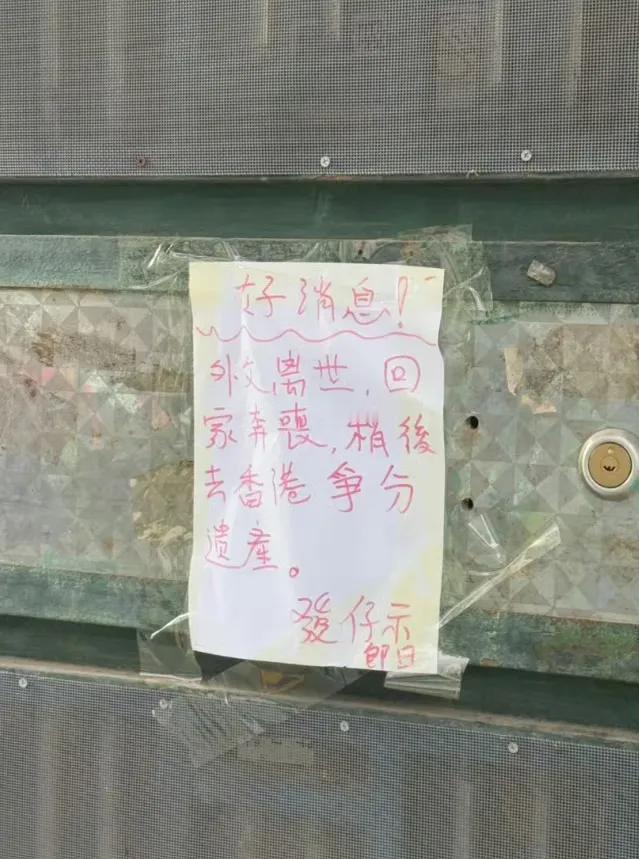 好消息!
外父离世,回
家奔喪,稍後
去香港争分
遺產。
發仔示
即日